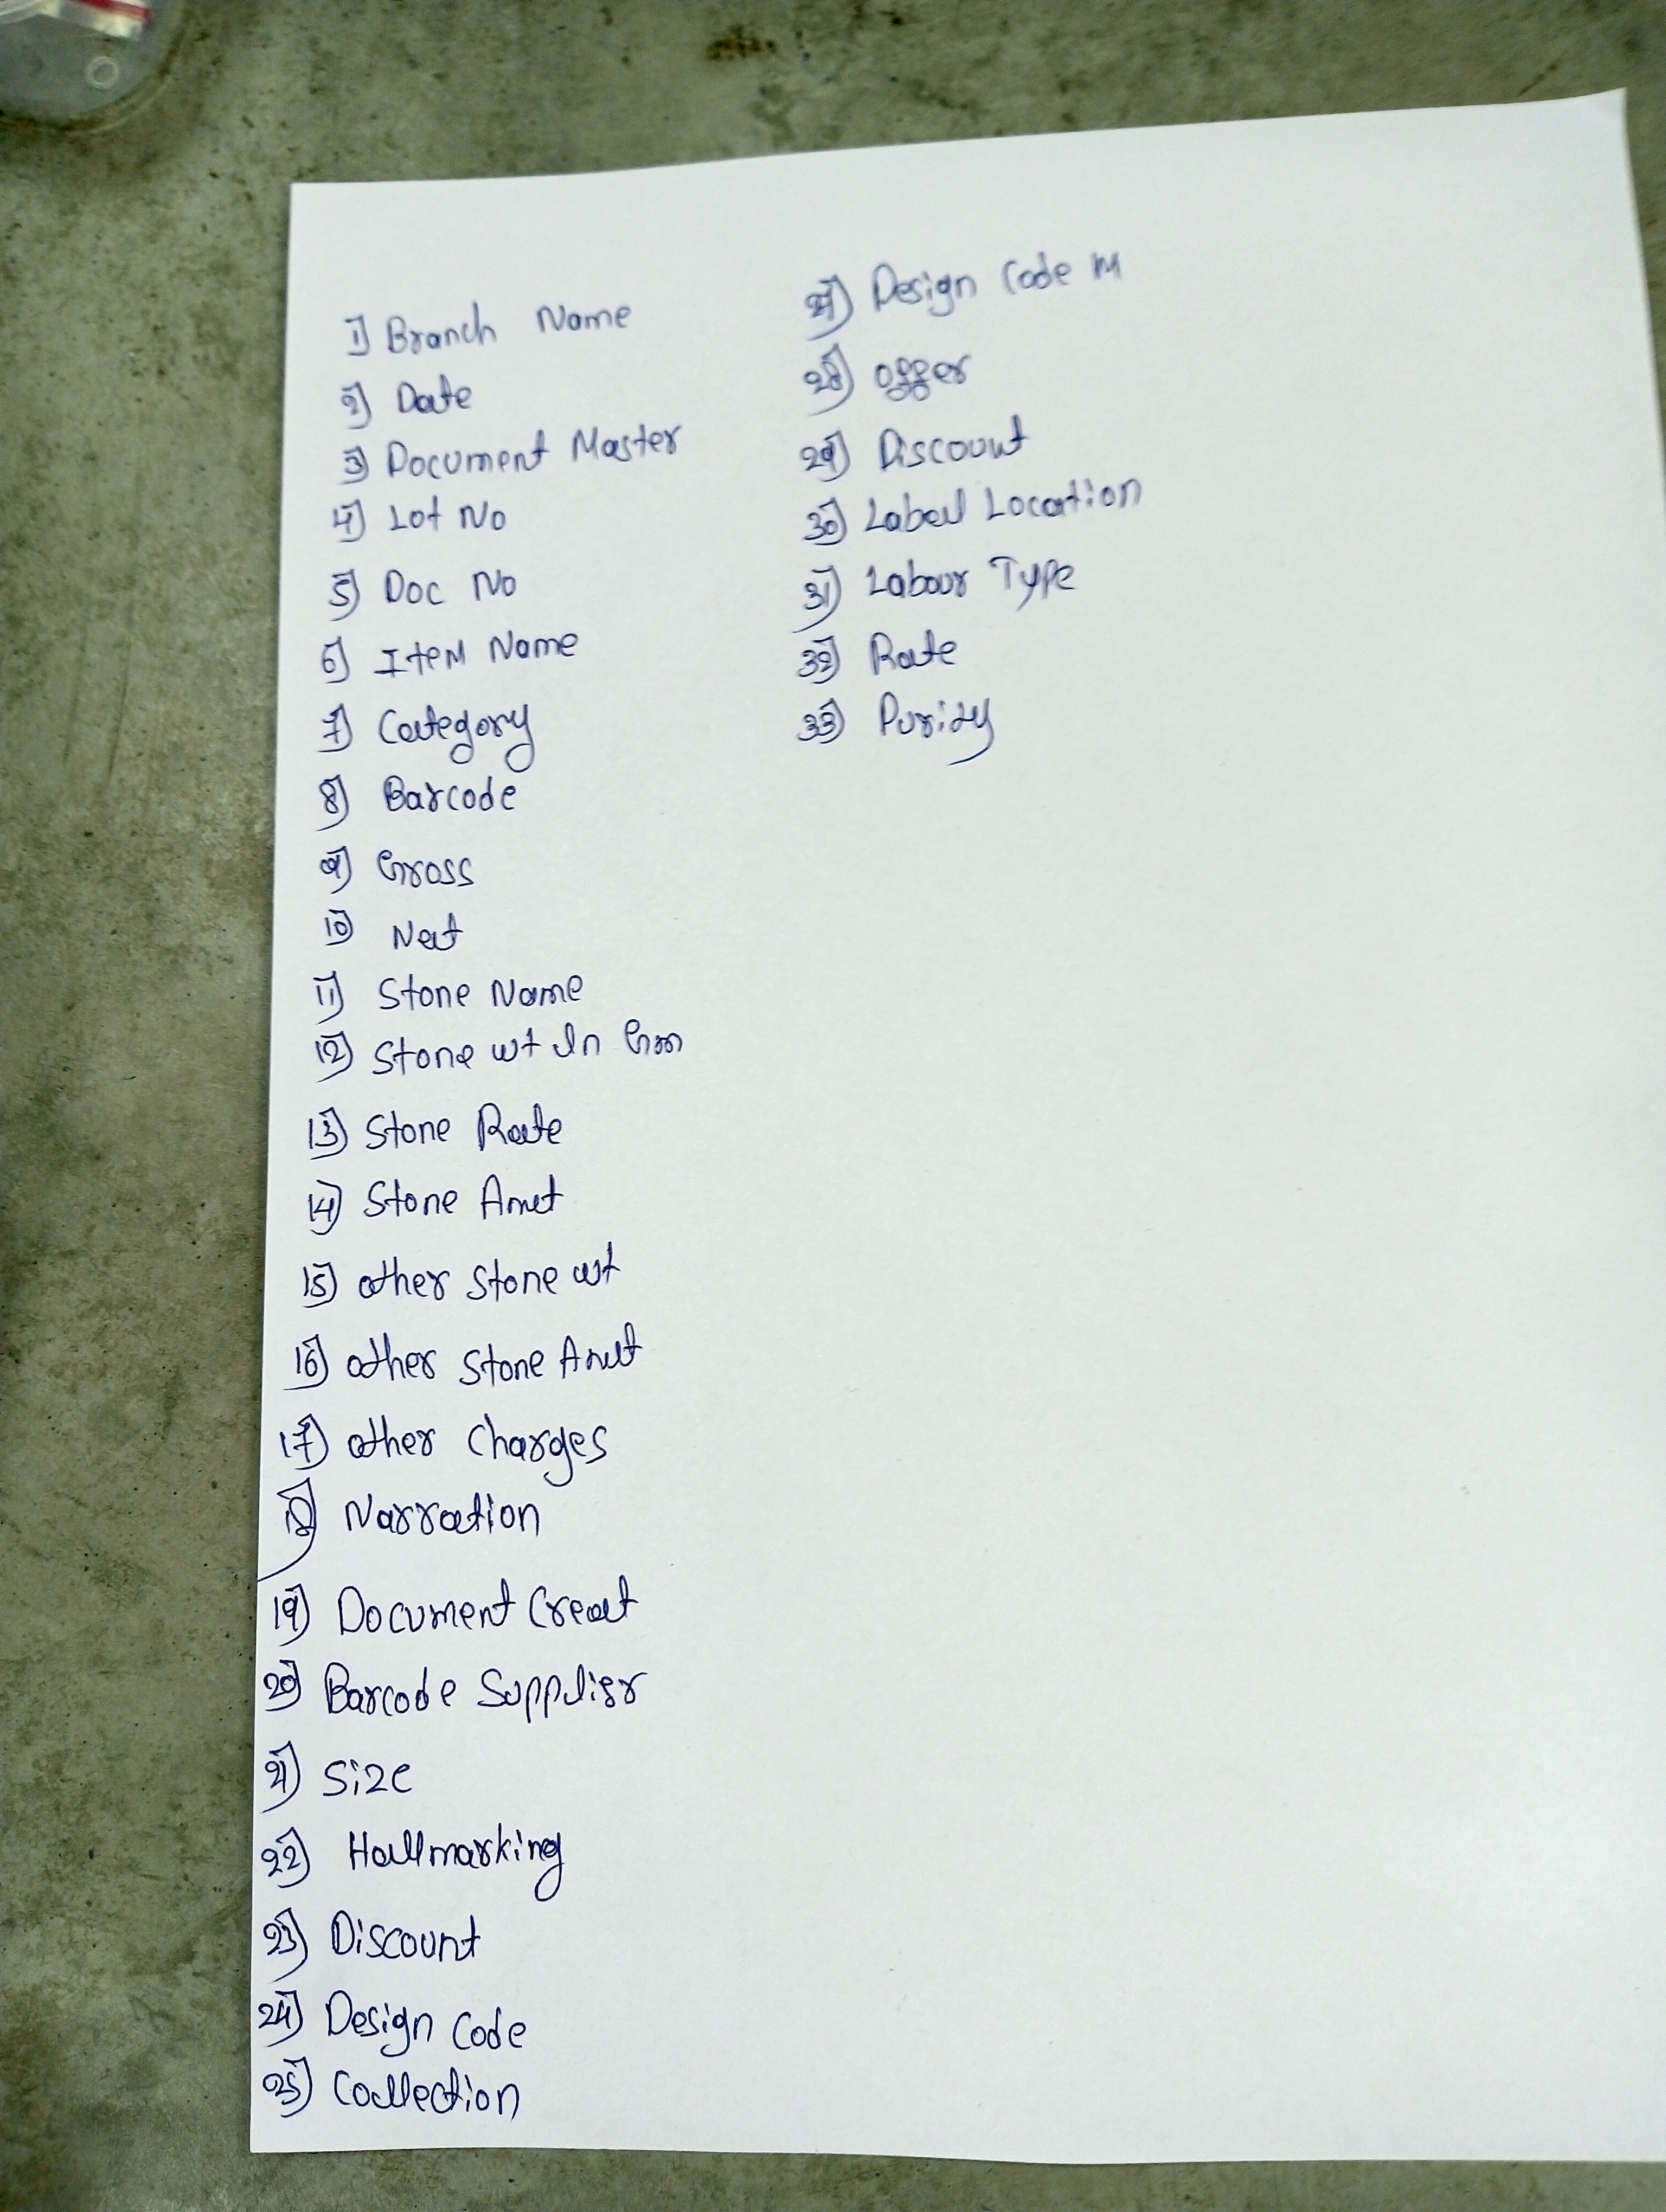 1) Branch Name
2) Date
3) Document Master
4) Lot No
5) Doc No
6) Item Name
7) Category
8) Barcode
9) Gross
10) Net
11) Stone Name
12) Stone wt In Gm
13) Stone Rate
14) Stone Amt
15) other Stone wt
16) other Stone Amt
17) other Charges
18) Narration
19) Document Creat
20) Barcode Supplier
21) Size
22) Hallmarking
23) Discount
24) Design Code
25) Collection
27) Design Code M
28) offer
29) Discount
30) Label Location
31) Labour Type
32) Rate
33) Purity